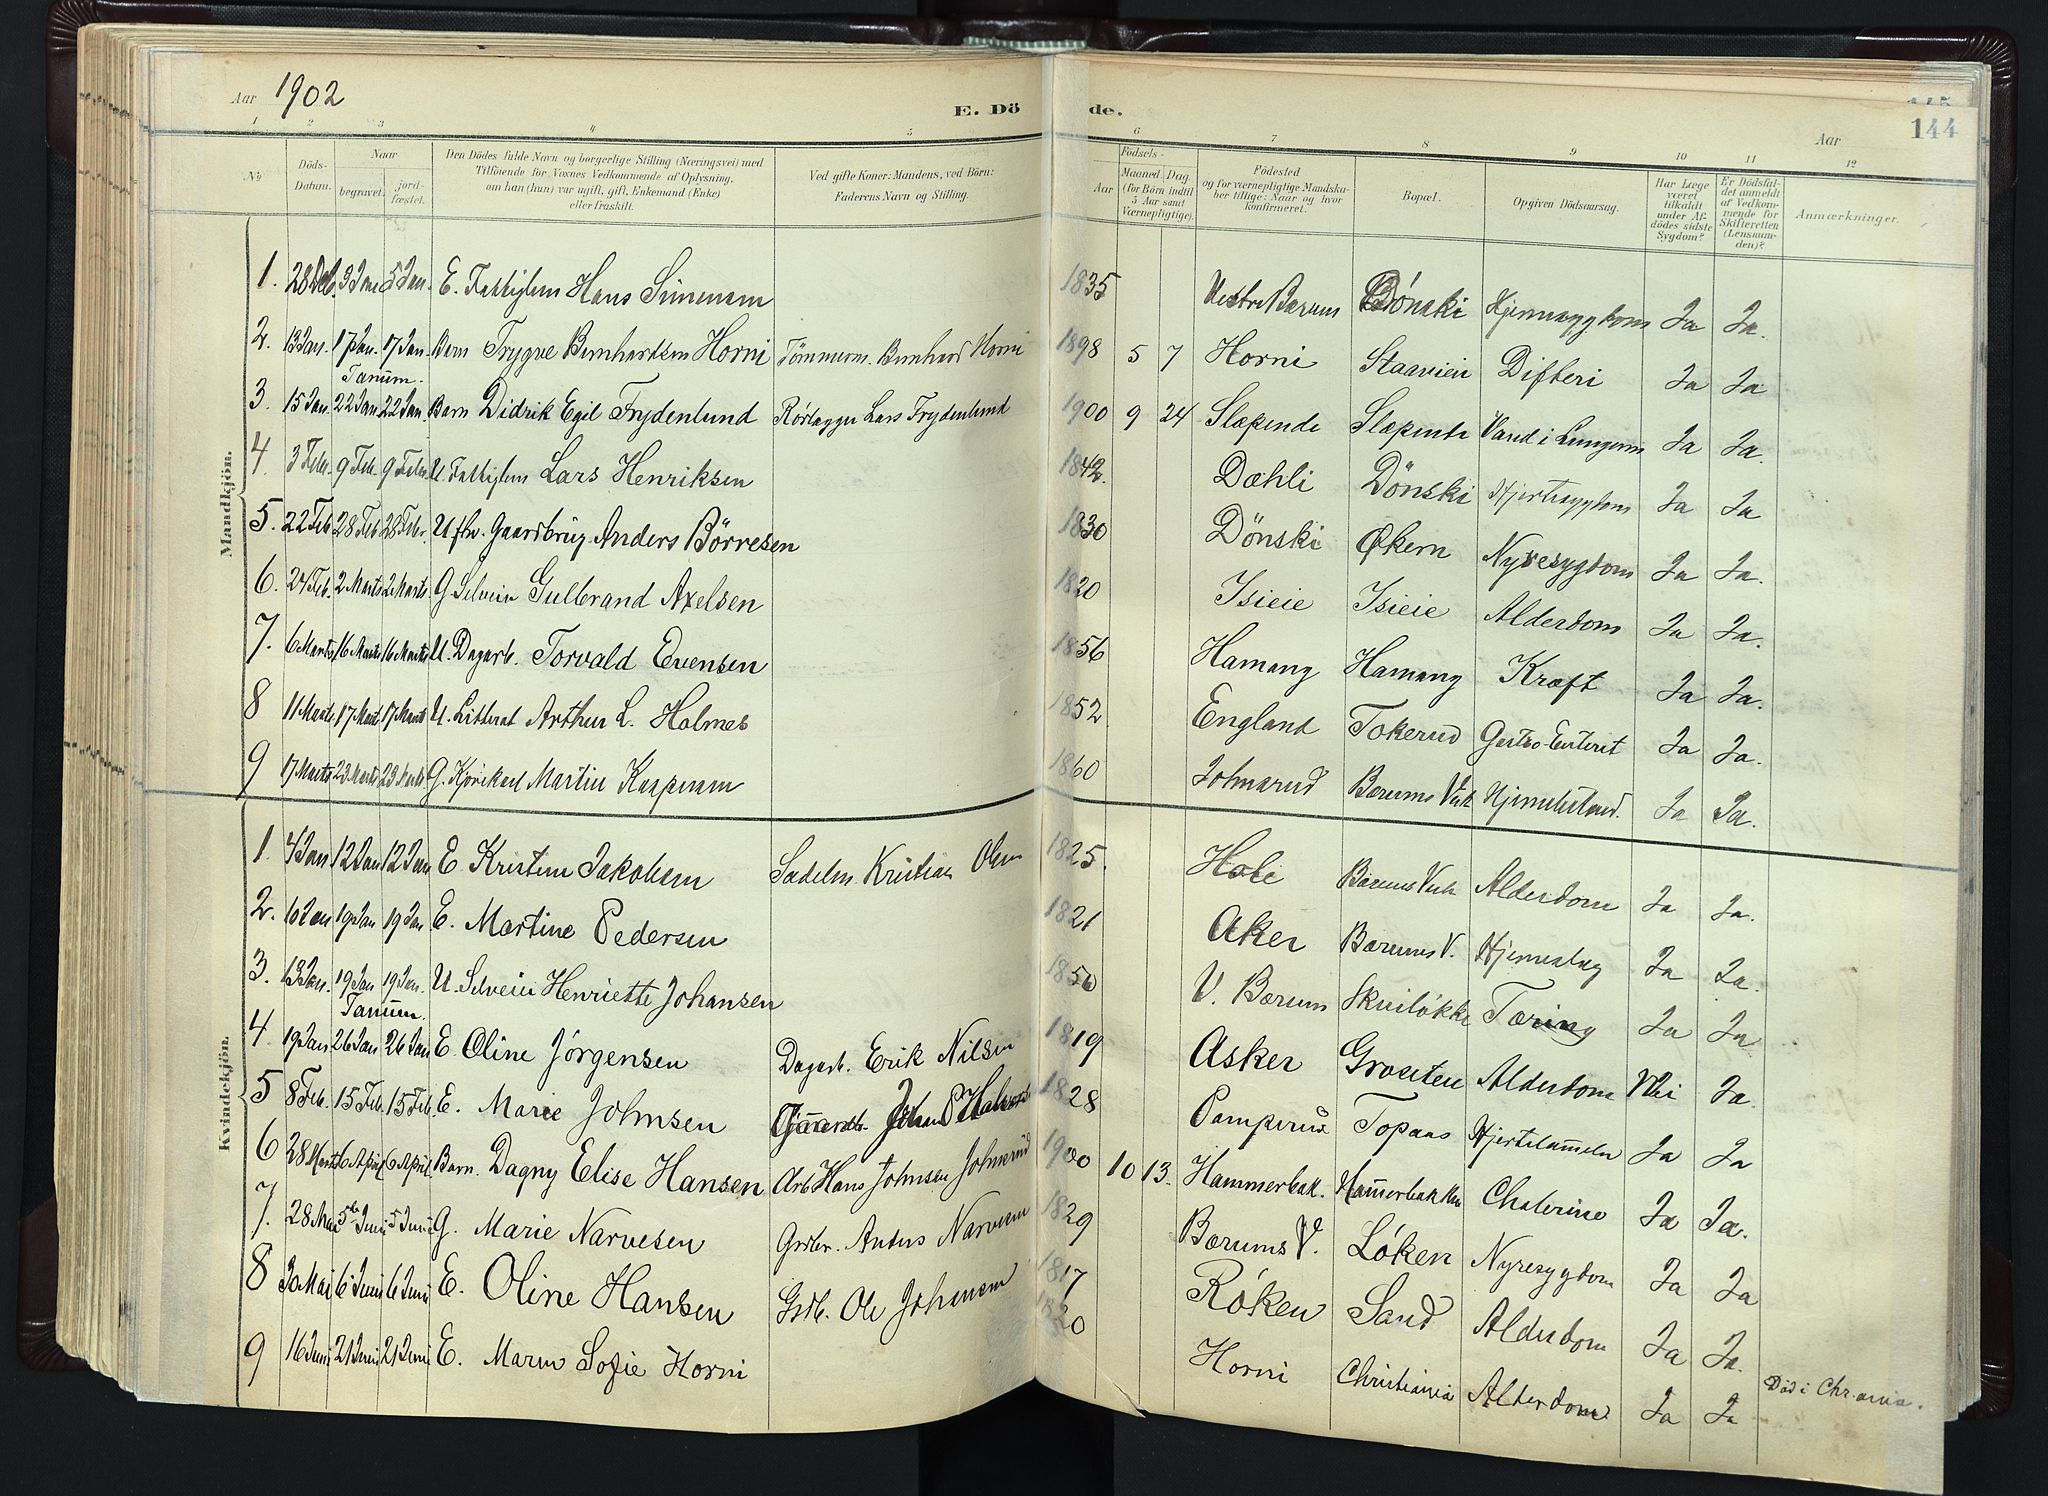 Aar 1902
E. Dö de.
145
144
Aar
1 2 3 4 5 6 7 8 9 10 11 12
No
Döds-
Datum.
Naar
begravet.
jord-
fæstet.
Den Dödes fulde Navn og borgerlige Stilling (Næringsvei) med
Tilföiende for Voxnes Vedkommende af Oplysning,
om han (hun) var ugift, gift, Enkemand (Enke)
eller fraskilt.
Ved gifte Koner: Mandens, ved Börn:
Faderens Navn og Stilling.
Födsels-
Aar
Maaned. Dag.
(for Börn indtil
5 Aar samt
Værnepligtige).
Födested
og for værnepligtige Mandska-
ber tillige: Naar og hvor
konfirmeret.
Bopæl.
Opgiven Dödsaarsag.
Har Læge
været
tilkaldt
under Af-
dödes sidste
Sygdom?
Er Dödsfal-
det anmeldt
af Vedkom-
mende for
Skifteretten
(Lensman-
den)?
Anmærkninger.
Mandkjön.
1. 28 Deb. 3 Jan 5 Jan. E. Fattiglem Hans Simensen 1835 Vestre Bærum Dönski Hjernesygdom Ja Ja.
2. 13 Jan. 17 Jan. 17 Jan. Barn Trygve Bernhardsen Horni Tömmerm. Bernhard Horni 1898 5 7 Horni Staavien Difteri Ja Ja
Tanum.
3. 15 Jan. 22 Jan 22 Jan. Barn Didrik Egil Frydenlund Rörlægger Lars Frydenlund 1900 9 24 Slæpende Slæpende Vand i Lungerne Ja Ja.
4. 3 Febr. 9 Feb. 9 Febr. U. Fattiglem Lars Henriksen 1842. Dæhli Dönski Hjertesygdom Ja Ja
5. 22 Feb 28 Feb 28 Febr. U. fhv. Gaardbrug. Anders Börresen 1830 Dönski Økern Nyresygdom Ja Ja.
6. 24 Feb. 2 Marts 2 Marts G. Selveier Gulbrand Axelsen 1820 Isieie Isieie Alderdom Ja Ja.
7. 6 Marts 16 Marts 16 Marts U. Dagarb. Torvald Evensen 1856 Hamang Hamang Kræft Ja Ja.
8 11 Marts 17 Marts 17 Marts U. Litterat Arthur L. Holmes 1852. England Tokerud Gastro-Enterit Ja Ja.
9 17 Marts 23 Marts 23 Marts G. Kjörekarl Martin Kaspersen 1860 Johnsrud Bærums Verk Hjernebetænd. Ja Ja.
Kvindekjön.
1. 4 Jan 12 Jan 12 Jan E. Kristine Jakobsen Sadelm. Kristian Olsen 1825. Hole Bærums Verk Alderdom Ja Ja.
2. 10 Jan 19 Jan 19 Jan E. Martine Pedersen 1821 Aker Bærums V. Hjerneslag Ja Ja.
3. 13 Jan. 19 Jan 19 Jan. U. Selveier Henriette Johansen 1850 V. Bærum Skuilökke Tæring Ja Ja
Tanum.
4. 19 Jan 26 Jan 26 Jan E. Oline Jörgensen Dagarb. Erik Nilsen 1819 Asker Graveten Alderdom Nei Ja.
5 8 Feb. 15 Feb. 15 Feb. E. Marie Johnsen Johan P. 1828 Pamperud Topaas Hjertelammelse Ja Ja
6 28 Marts 6 April 6 April. Barn. Dagny Elise Hansen Arb. Hans Johnsen Johnsrud 1900 10 13. Hammerbak. Hammerbakken Cholerine Ja Ja.
7. 28 Mai 5te Juni 5 Juni G. Marie Narvesen Grdbr. Anders Narvesen 1829 Bærums V. Löken Nyresygdom Ja Ja
8 30 Mai 6 Juni 6 Juni E. Oline Hansen Grdb. Ole Johansen 1817 Röken Sand Alderdom Ja Ja.
9 16 Juni 21 Juni 21 Juni E. Maren Sofie Horni 1820 Horni Christiania Alderdom Ja Ja Död i Chr.ania.